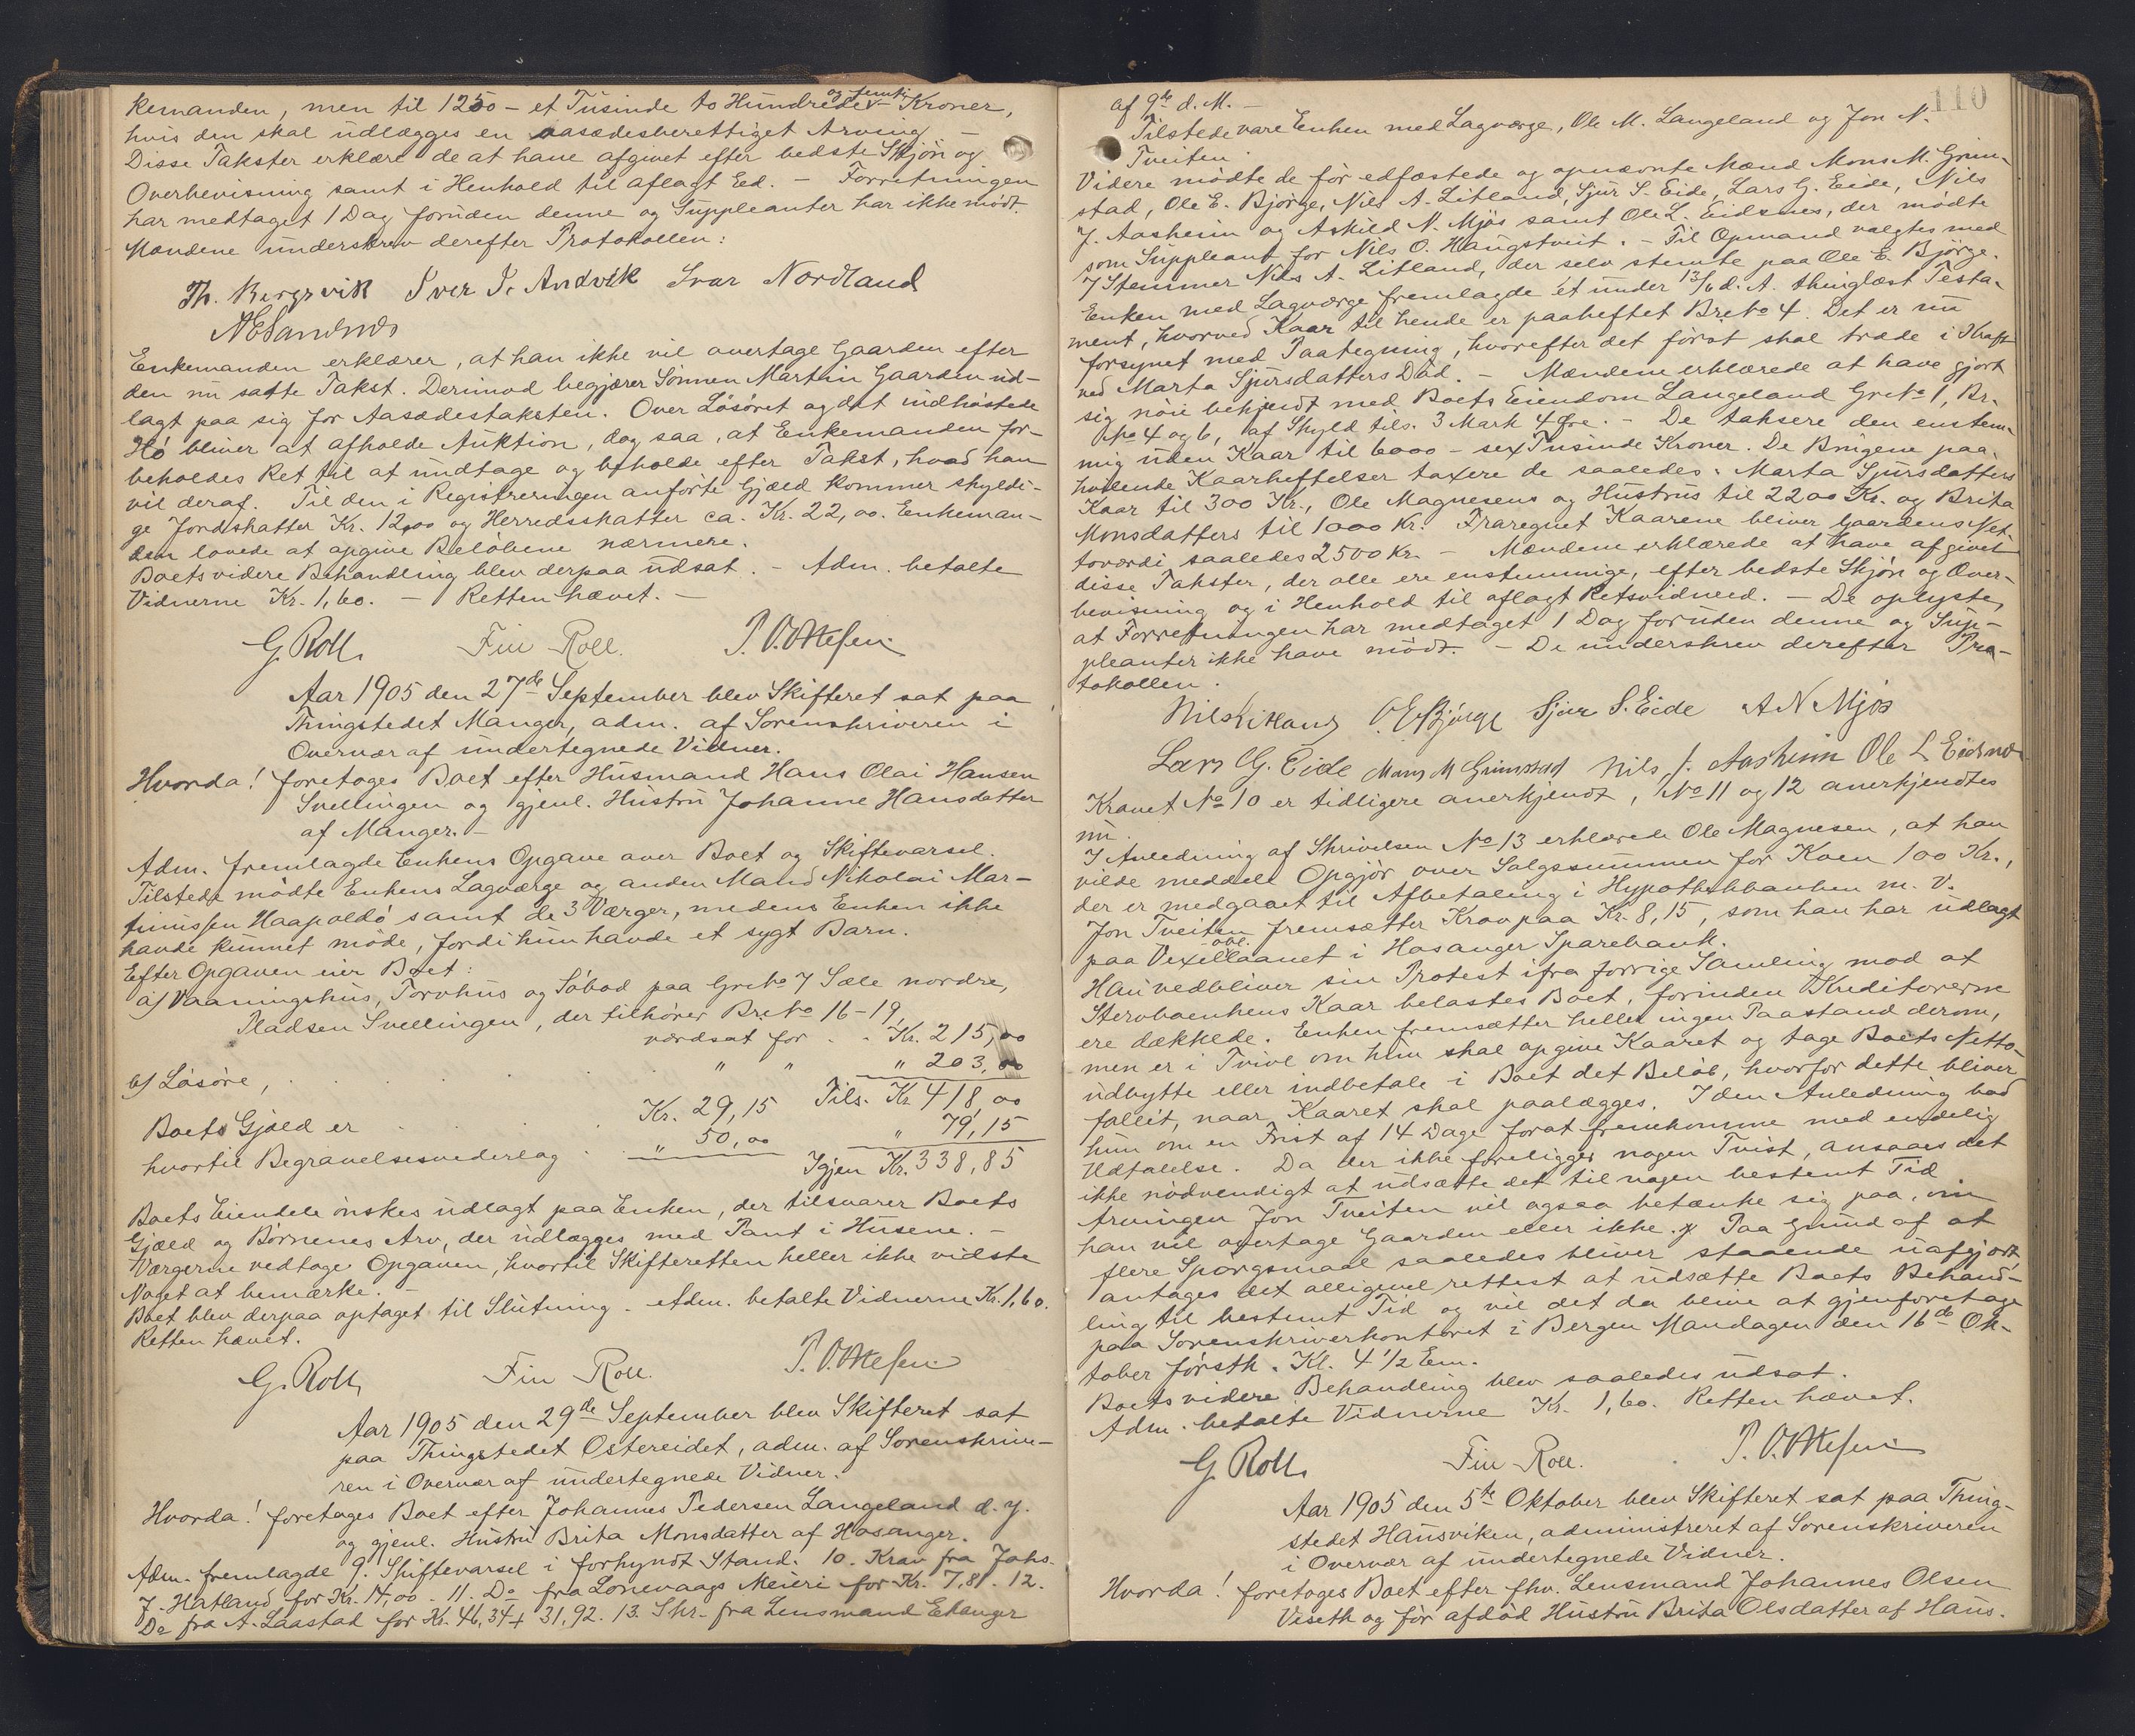 kemanden, men til 1250 - et Tusinde to Hundrede og femti - Kroner,
hvis den skal udlægges en aasædesberettiget Arving. -
Disse Takster erklære de at have afgivet efter bedste Skjön og
Overbevisning samt i Henhold til aflagt Eed. - Forretningen
har medtaget 1 Dag foruden denne og Suppleanter har ikke mödt.
Mændene underskrev derefter Protokollen:
Th. Bergsvik Iver I. Andvik Ivar Nordland
Enkemanden erklærer, at han ikke vil overtage Gaarden efter
den nu satte Takst. Derimod begjærer Sönnen Martin Gaarden ud-
lagt paa sig for Aasædestaksten. Over Lösöret og det indhöstede
Hö bliver at afholde Auktion, dog saa, at Enkemanden for-
beholdes Ret til at undtage og beholde efter Takst, hvad han
vil deraf. Til den i Registreringen anförte Gjæld kommer skyldi-
ge Jordskatter Kr. 12,00 og Herredsskatter ca. Kr. 22,00. Enkeman-
den lovede at opgive Belöbene nærmere.
Boets videre Behandling blev derpaa udsat. - Adm. betalte
Vidnerne Kr. 1,60. - Retten hævet. -
G. Roll Fin Roll. P. Ottesen
Aar 1905 den 27de September blev Skifteret sat paa
Thingstedet Manger, adm. af Sorenskriveren i
Overvær af undertegnede Vidner.
Hvorda! foretoges Boet efter Husmand Hans Olai Hansen
Svellingen og gjenl. Hustru Johanne Hansdatter
af Manger. -
Adm. fremlagde Enkens Opgave over Boet og Skiftevarsel.
Tilstede mödte Enkens Lagværge og anden Mand Nikolai Mar-
tinussen Haapoldö samt de 3 Værger, medens Enken ikke
havde kunnet möde, fordi hun havde et sygt Barn.
Efter Opgaven eier Boet:
a/ Vaaningshus, Torvhus og Söbod paa Grno 7 Sæle nordre,
Pladsen Svellingen, der tilhörer Br.No 16-19,
værdsat for . . Kr. 215,00
b/ Lösöre, . . . . " " " 203,00
Tils. Kr. 418,00
Boets Gjæld er . . . Kr. 29,15
hvortil Begravelsesvederlag . . " 50,00 " 79,15
Igjen Kr. 338,85
Boets Eiendele önskes udlagt paa Enken, der tilsvarer Boets
Gjæld og Börnenes Arv, der udlægges med Pant i Husene. -
Værgerne vedtoge Opgaven, hvortil Skifteretten heller ikke vidste
Noget at bemærke. -
Boet blev derpaa optaget til Slutning. Adm. betalte Vidnerne Kr. 1,60.
Retten hævet.
G. Roll Fin Roll. P. Ottesen
Aar 1905 den 29de September blev Skifteret sat
paa Thingstedet Ostereidet, adm. af Sorenskrive-
ren i Overvær af undertegnede Vidner.
Hvorda! foretoges Boet efter Johannes Pedersen Langeland d. y.
og gjenl. Hustru Brita Monsdatter af Hosanger.
Adm. fremlagde 9. Skiftevarsel i forkyndt Stand. 10. Krav fra Johs.
J. Hatland for Kr. 14,00. 11. Do fra Lonevaags Meieri for Kr. 7,81. 12.
Do fra A. Laastad for Kr. 46,34 + 31,92. 13. Skr. fra Lensmand Ekanger
110
af 9de d. M. -
Tilstede vare Enken med Lagværge, Ole M. Langeland og Jon N.
Tveiten.
Videre mödte de för edfæstede og opnævnte Mænd Mons M. Grim-
stad, Ole E. Bjorge, Nils A. Litland, Sjur S. Eide, Lars G. Eide, Nils
J. Aasheim og Askild N. Mjös samt Ole L. Eidsnes, der mödte
som Suppleant for Nils O. Haugstveit. - Til Opmand valgtes med
7 Stemmer Nils A. Litland, der selv stemte paa Ole E. Björge.
Enken med Lagværge fremlagde et under 13/6 d. A. thinglæst Testa-
ment, hvorved Kaar til hende er paaheftet Br.No 4. Det er nu
forsynet med Paategning, hvorefter det först skal træde i Kraft
ved Marta Sjursdatters Död. - Mændene erklærede at have gjort
sig nöie bekjendt med Boets Eiendom Langeland Grno 1, Br.
No 4 og 6, af Skyld tils. 3 Mark 4 Öre. - De taksere den enstem-
mig uden Kaar til 6000 - sex Tusinde Kroner. De Brugene paa-
hvilende Kaarheftelser taxere de saaledes: Marta Sjursdatters
Kaar til 300 Kr., Ole Magnesens og Hustrus til 2200 Kr. og Brita
Monsdatters til 1000 Kr. Fraregnet Kaarene bliver Gaardens Net-
toværdi saaledes 2500 Kr. - Mændene erklærede at have afgivet
disse Takster, der alle ere enstemmige, efter bedste Skjön og Over-
bevisning og i Henhold til aflagt Retsvidneed. - De oplyste,
at Forretningen har medtaget 1 Dag foruden denne og Sup-
pleanter ikke have mödt. - De underskrev derefter Pro-
tokollen.
Nils Litland O. E. Björge Sjur S. Eide A N Mjös
Lars G. Eide Mons M Grimstad Nils J. Aasheim Ole L Eidsnes
Kravet No 10 er tidligere anerkjendt, No 11 og 12 anerkjendtes
nu.
I Anledning af Skrivelsen No 13 erklærede Ole Magnesen, at han
vilde meddele Opgjör over Salgssummen for Koen 100 Kr.,
der er medgaaet til Afbetaling i Hypothekbanken m. V.
Jon Tveiten fremsætter Krav paa Kr. 8,15, som han har udlagt
paa Vexelobl.laanet i Hosanger Sparebank.
Han vedbliver sin Protest ifra forrige Samling mod at
Stervboenkens Kaar belastes Boet, forinden Kreditorerne
ere dækkede. Enken fremsætter heller ingen Paastand derom,
men er i Tvivl om hun skal opgive Kaaret og tage Boets Netto-
udbytte eller indbetale i Boet det Belöb, hvorfor dette bliver
fallit, naar Kaaret skal paalægges. I den Anledning bad
hun om en Frist af 14 Dage forat fremkomme med endelig
Udtalelse. Da der ikke foreligger nogen Tvist, ansaaes det
ikke nödvendigt at udsætte det til nogen bestemt Tid
Arvingen Jon Tveiten vil ogsaa betænke sig paa, om
han vil overtage Gaarden eller ikke. Paa Grund af at
flere Spörgsmaal saaledes bliver staaende uafgjort,
antages det alligevel rettest at udsætte Boets Behand-
ling til bestemt Tid og vil det da blive at gjenforetage
paa Sorenskriverkontoret i Bergen Mandagen den 16de Ok-
tober förstk. Kl. 4 1/2 Em.
Boets videre Behandling blev saaledes udsat.
Adm. betalte Vidnerne Kr. 1,60. Retten hævet.
G. Roll Fin Roll. P. Ottesen
Aar 1905 den 5te Oktober blev Skifteret sat paa Thing-
stedet Hausviken, administreret af Sorenskriveren
i Overvær af undertegnede Vidner.
Hvorda! foretoges Boet efter fhv. Lensmand Johannes Olsen
Viseth og för afdöd Hustru Brita Olsdatter af Haus.